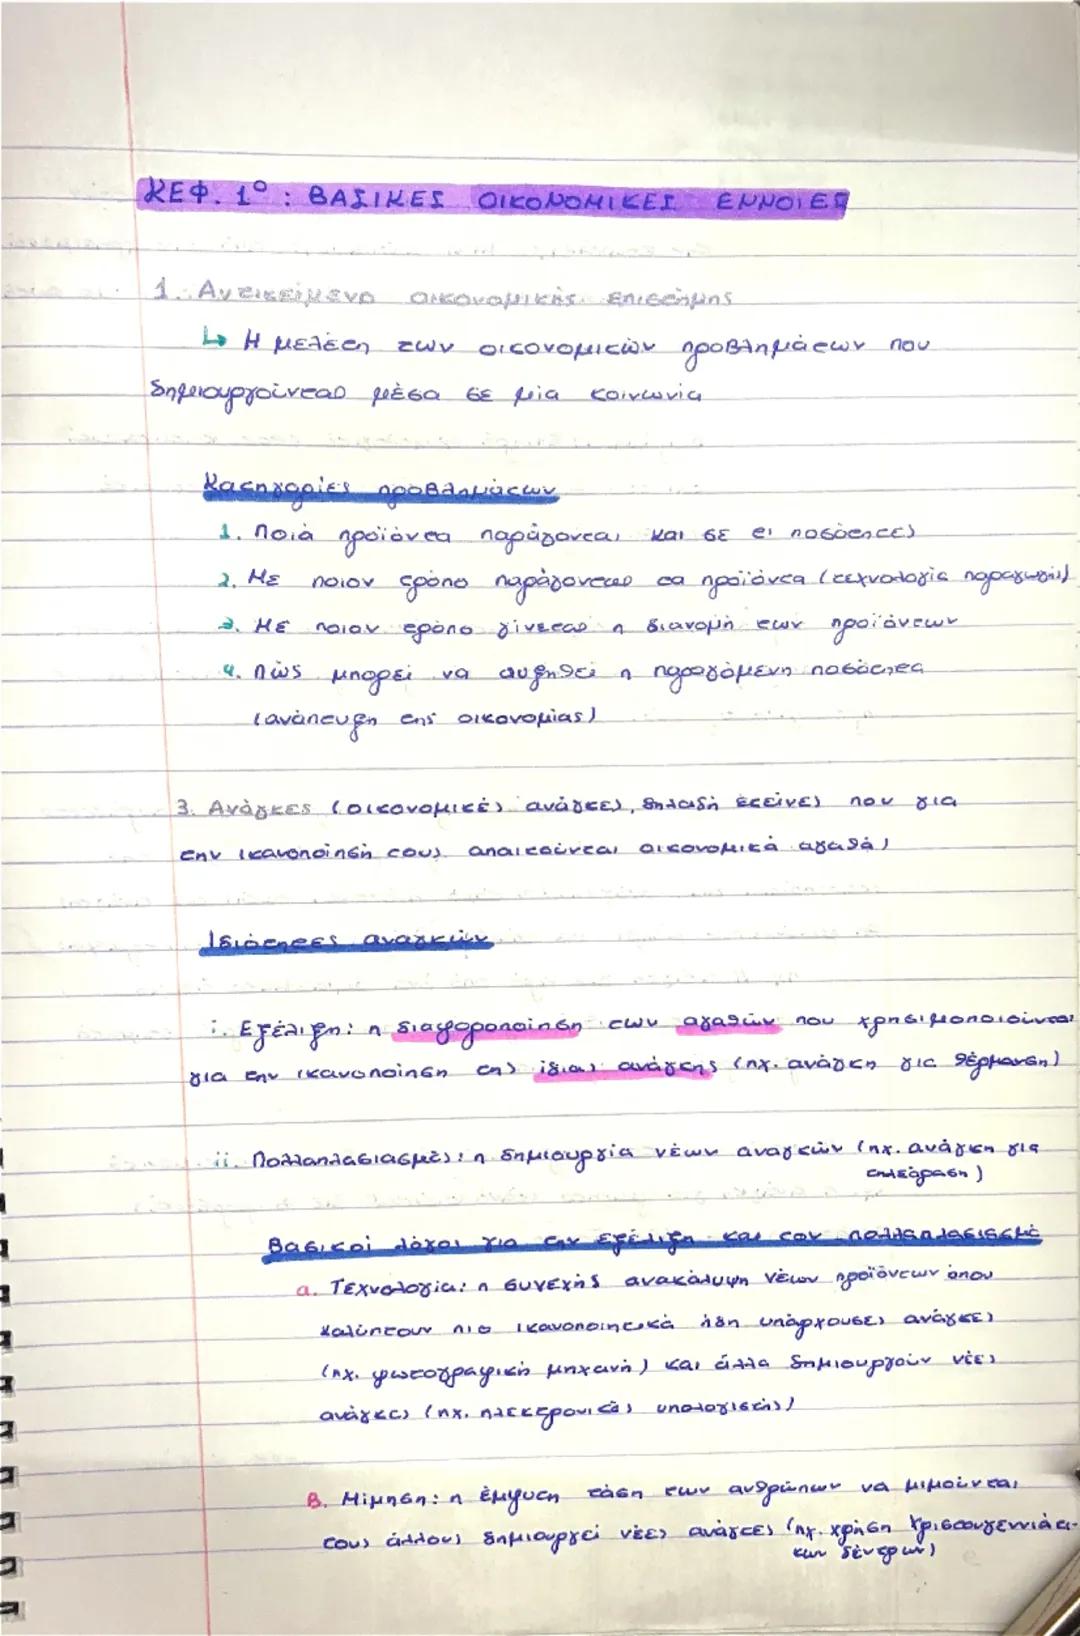 ΚΕΦ. 1º : ΒΑΣΙΚΕΣ ΟΙΚΟΝΟΜΙΚΕΣ ΕΝΝΟΙΕΣ
1. Αντικείμενο οικονομικής επιστήμης
↳ Η μελέτη των οικονομικών προβλημάτων που
δημιουργούνται μέσα σε μία κοινωνία
Κατηγορίες προβλημάτων
1. Ποιά προϊόντα παράγονται και σε τι ποσότητες
2. Με ποιον τρόπο παράγονται τα προϊόντα (τεχνολογία παραγωγής)
3. Με ποιον τρόπο γίνεται η διανομή των προϊόντων
4. Πώς μπορεί να αυξηθεί η παραγόμενη ποσότητα
(ανάπτυξη της οικονομίας)
3. Ανάγκες (οικονομικές ανάγκες, δηλαδή εκείνες που για
την ικανοποίησή τους απαιτούνται οικονομικά αγαθά)
Ιδιότητες αναγκών
i. Εξέλιξη: η διαφοροποίηση των αγαθών που χρησιμοποιούνται
για την ικανοποίηση της ίδιας ανάγκης (πχ. ανάγκη για θέρμανση)
ii. Πολλαπλασιασμός: η δημιουργία νέων αναγκών (πχ. ανάγκη για
τηλεόραση)
Βασικοί λόγοι για την εξέλιξη και τον πολλαπλασιασμό
α. Τεχνολογία: η συνεχής ανακάλυψη νέων προϊόντων όπου
καλύπτουν πιο ικανοποιητικά ήδη υπάρχουσες ανάγκες
(πχ. φωτογραφική μηχανή) και άλλα δημιουργούν νέες
ανάγκες (πχ. ηλεκτρονικός υπολογιστής)
Β. Μίμηση: η έμφυτη τάση των ανθρώπων να μιμούνται
τους άλλους δημιουργεί νέες ανάγκες (πχ. χρήση Χριστουγεννιάτι-
κων δέντρων)